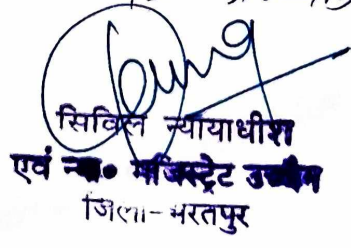 सिविल न्यायाधीश
एवं न्या० मजिस्ट्रेट उच्चैन
जिला-भरतपुर